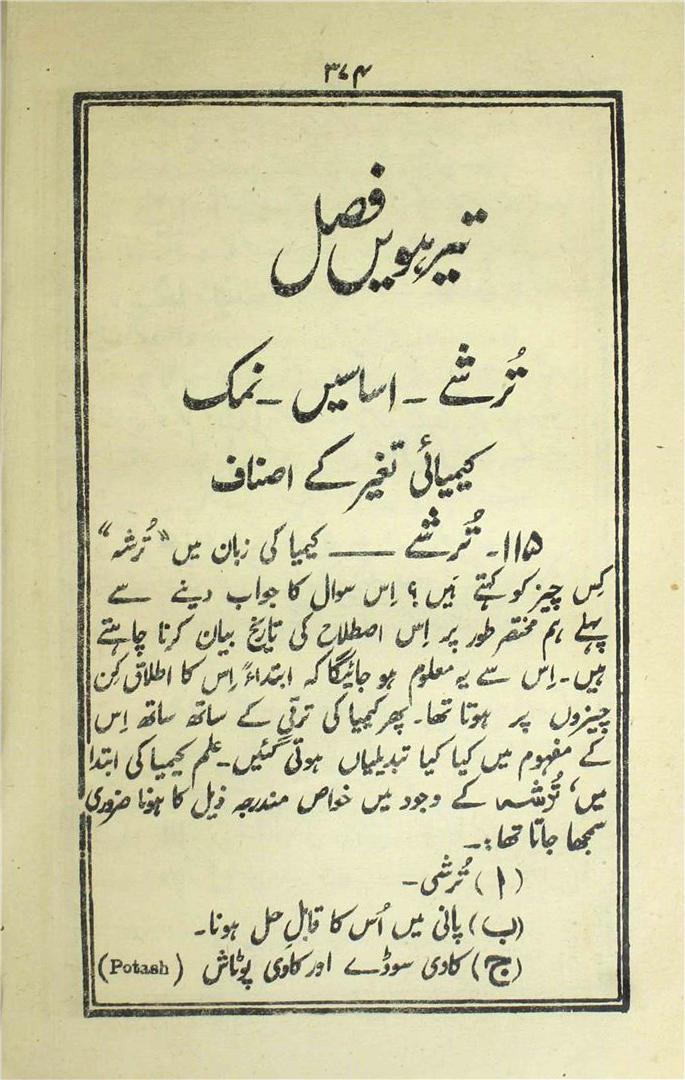 ۳۷۴
تیرھویں فصل
تُرشے ۔ اساسیں ۔ نمک
کیمیائی تغیر کے اصناف
۱۱۵۔ تُرشے ــــ کیمیا کی زبان میں "تُرشہ"
کِس چیز کو کہتے ہَیں؟ اِس سوال کا جواب دینے سے
پہلے ہم مختصر طور پر اِس اصطلاح کی تاریخ بیان کرنا چاہتے
ہیں۔ اِس سے یہ معلوم ہو جائیگا کہ ابتداءً اِس کا اطلاق کِن
چیزوں پر ہوتا تھا۔ پھر کیمیا کی ترقی کے ساتھ ساتھ اِس
کے مفہوم میں کیا کیا تبدیلیاں ہوتی گئیں۔ علم کیمیا کی ابتدا
میں، تُرشہ کے وجود میں خواص مندرجہ ذیل کا ہونا ضروری
سمجھا جاتا تھا:۔
(ا) تُرشی۔
(ب) پانی میں اُس کا قابلِ حل ہونا۔
(ج) کاوی سوڈے اور کاوی پوٹاش (Potash)